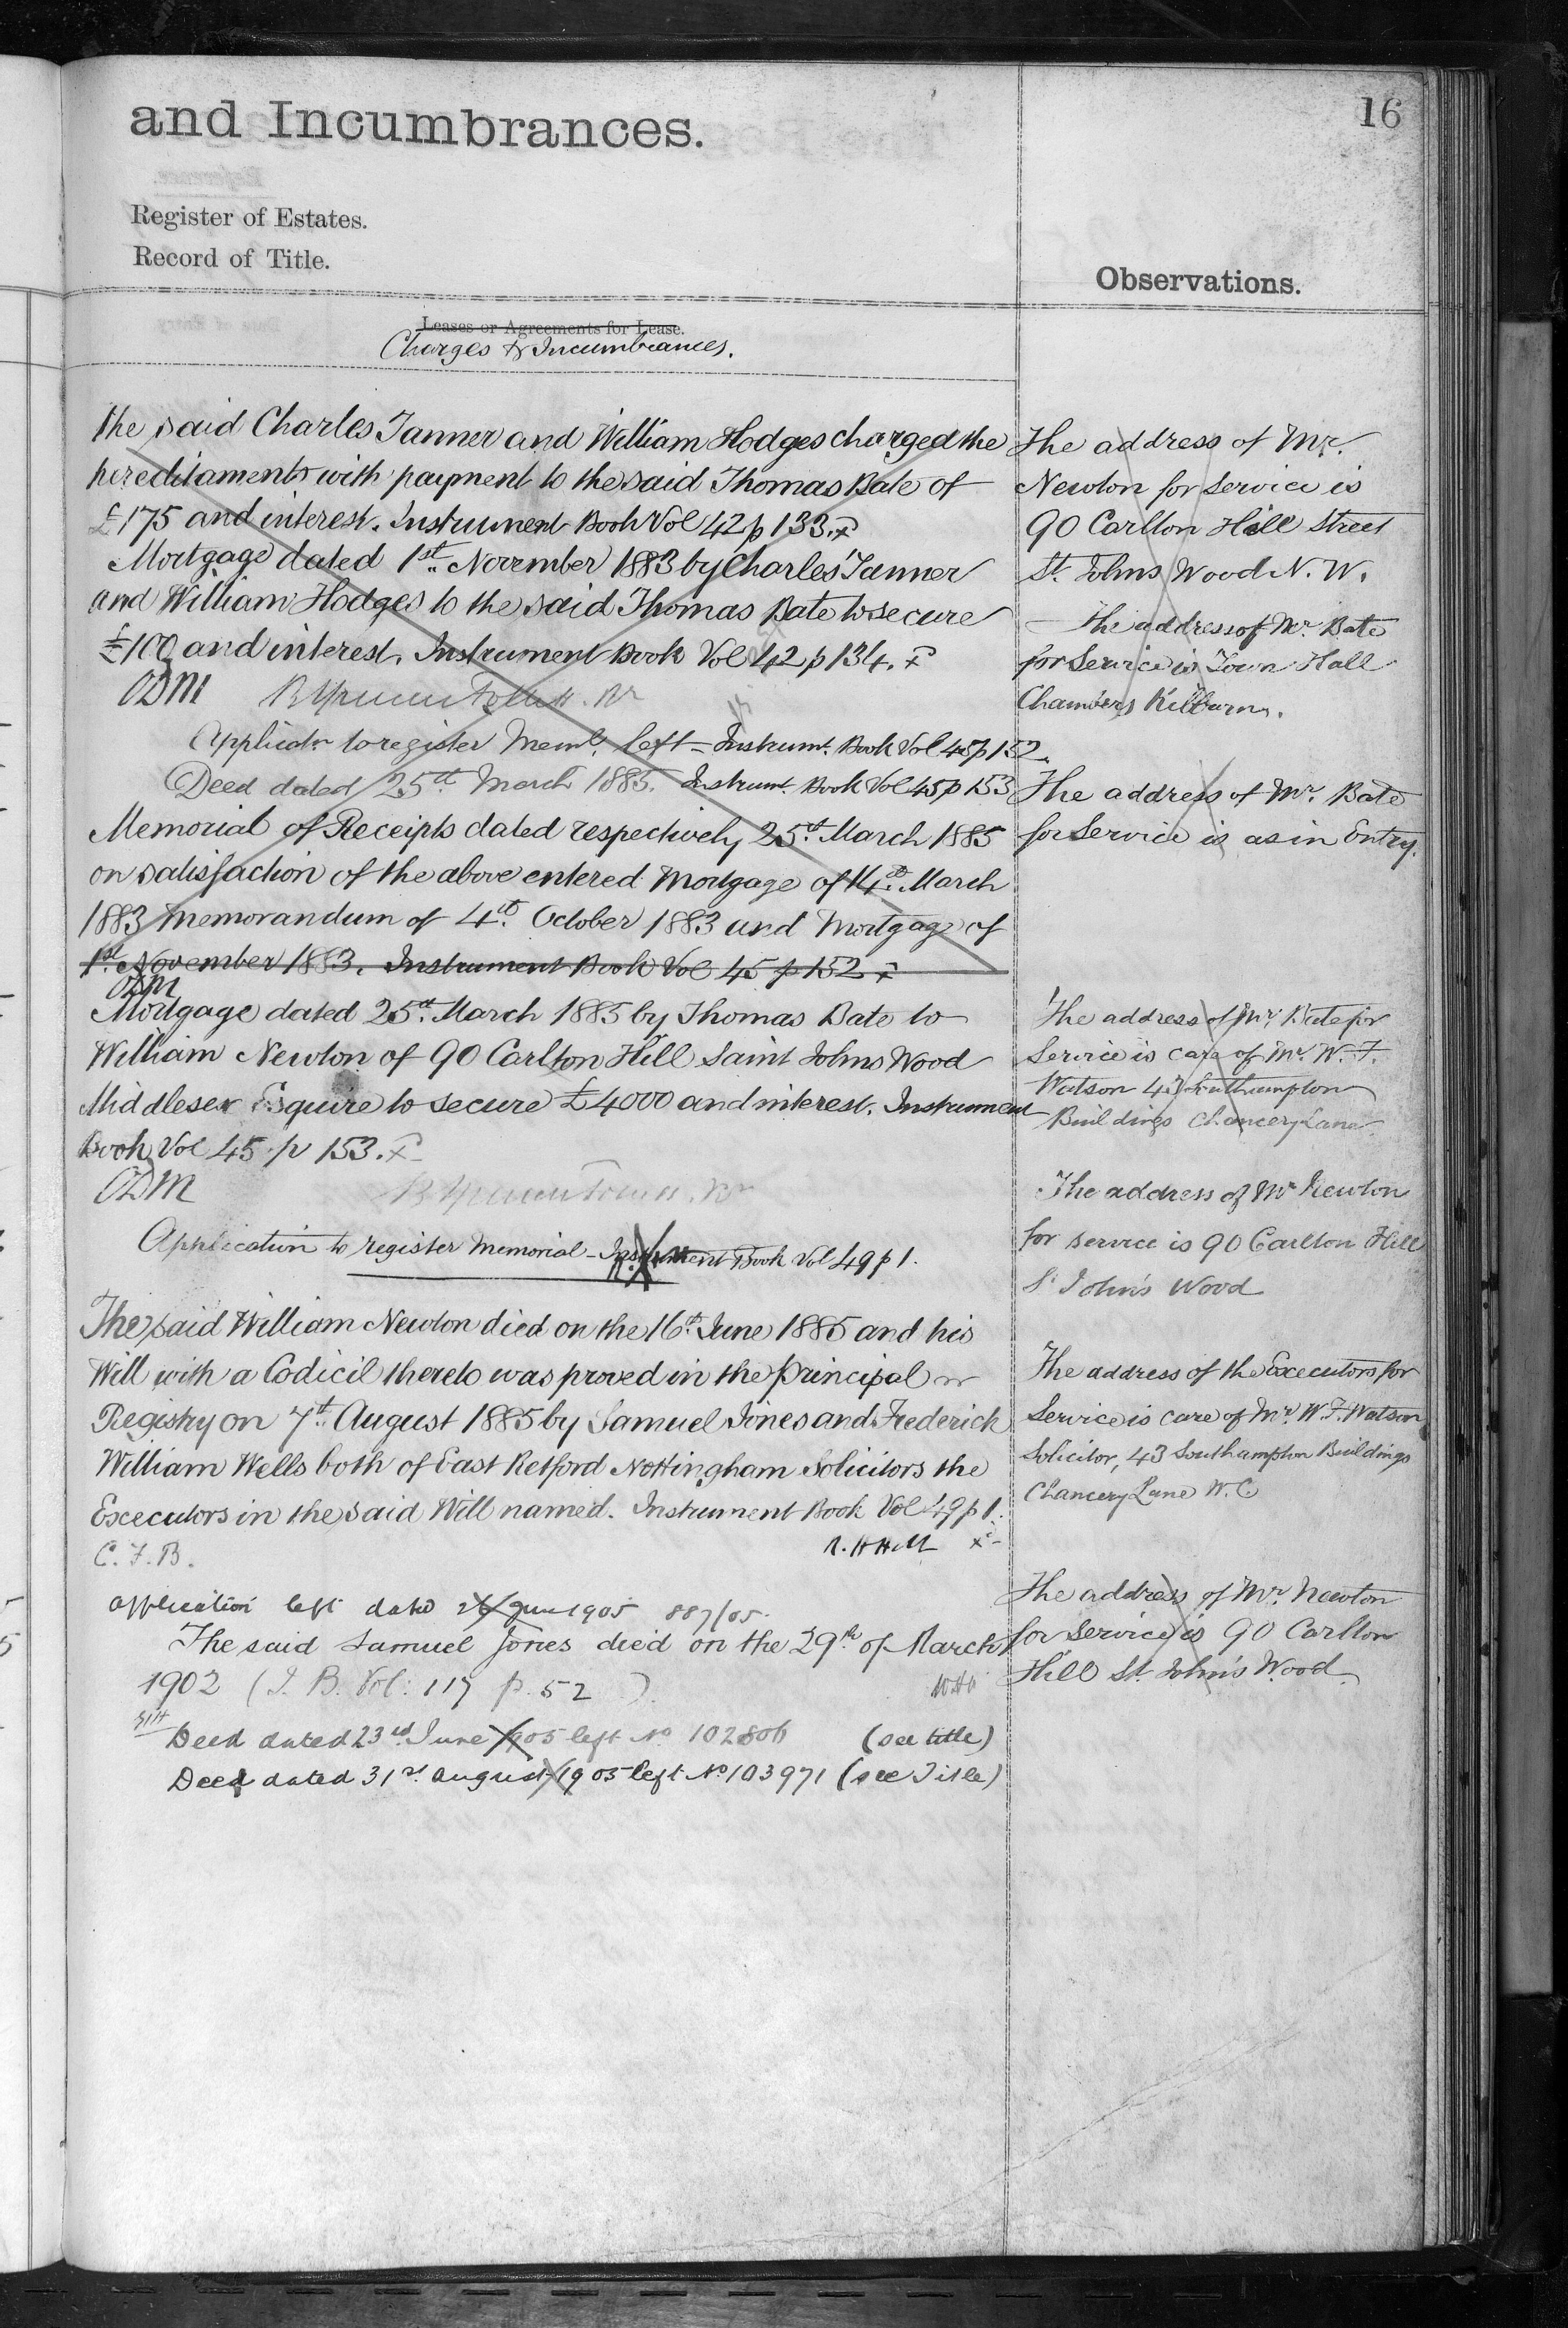 and Incumbrances.
16
Register of Estates.
Record of Title.
Observations.
Leases or Agreements for Lease.
Charges & Incumbrances.
the said Charles Tanner and William Hodges charged the
hereditaments with payment to the said Thomas Bate of
£175 and interest. Instrument Book Vol 42 p 133.
Mortgage dated 1st November 1883 by Charles Tanner
and William Hodges to the said Thomas Bate to secure
£100 and interest. Instrument Book Vol 42 p 134.
ODM
Applicatn to register Meml. left - Instrumt. Book Vol 45 p 152.
Deed dated 25th March 1885. Instrumt. Book Vol 45 p 153
Memorial of Receipts dated respectively 25th March 1885
on satisfaction of the above entered Mortgage of 14th March
1883 Memorandum of 4th October 1883 and Mortgage of
1st November 1883. Instrument Book Vol 45 p 152
ODM
Mortgage dated 25th March 1885 by Thomas Bate to
William Newton of 90 Carlton Hill Saint Johns Wood
Middlesex Esquire to secure £4000 and interest. Instrument
Book Vol 45 p 153.
ODM
Application to register Memorial - Instrument Book Vol 49 p 1.
The said William Newton died on the 16th June 1885 and his
Will with a Codicil thereto was proved in the Principal
Registry on 7th August 1885 by Samuel Jones and Frederick
William Wells both of East Retford Nottingham Solicitors the
Executors in the said Will named. Instrument Book Vol 49 p 1.
C. F. B.
application left dated 26 June 1905 887/05.
The said Samuel Jones died on the 29th of March
1902 (I. B. Vol: 117 p. 52 ).
Deed dated 23rd June 1905 left No 102806 (see title)
Deed dated 31st August 1905 left No 103971 (see Title)
The address of Mr.
Newton for Service is
90 Carlton Hill Street
St. Johns Wood N. W.
The address of Mr. Bate
for Service is Town Hall
Chambers Kilburn.
The address of Mr. Bate
for Service is as in Entry.
The address of Mr. Bate for
Service is care of Mr. W. F.
Watson 43 Southampton
Buildings Chancery Lane
The address of Mr Newton
for service is 90 Carlton Hill
St John's Wood
The address of the Executors for
Service is care of Mr. W. F. Watson
Solicitor, 43 Southampton Buildings
Chancery Lane W. C
The address of Mr. Newton
for Service is 90 Carlton
Hill St. John's Wood.